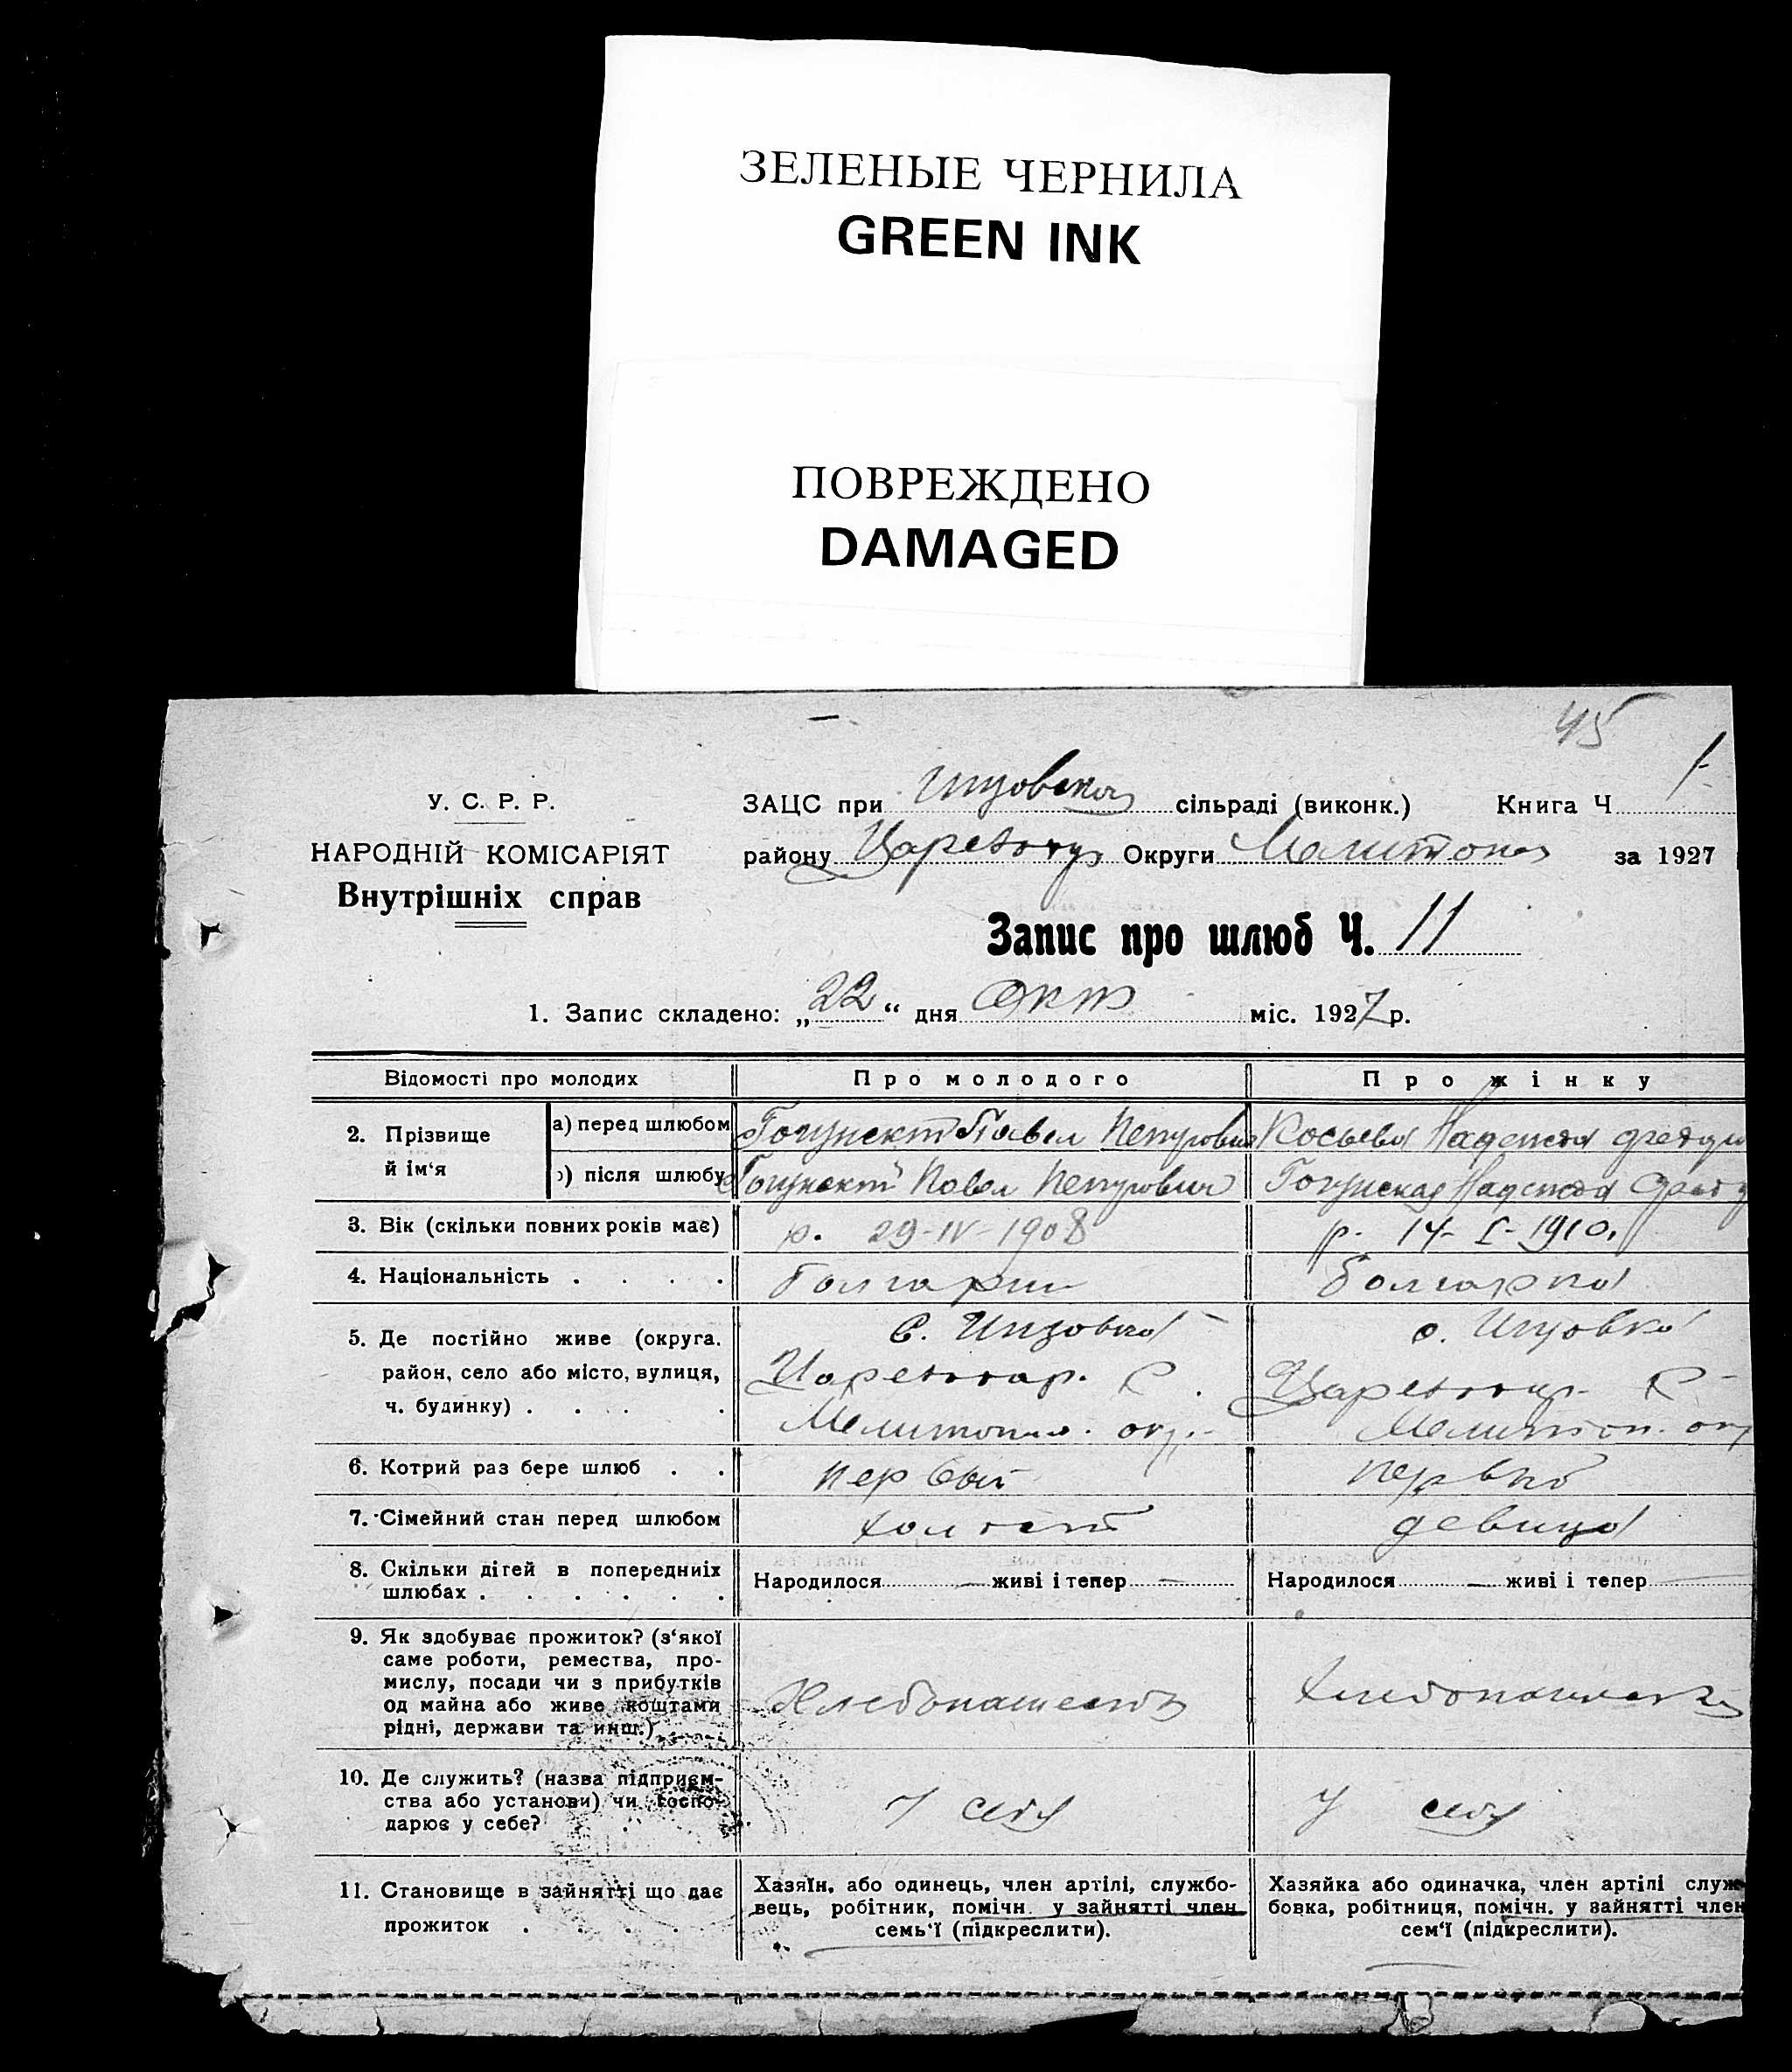 ЗЕЛЕНЫЕ ЧЕРНИЛА
GREEN INK
ПОВРЕЖДЕНО
DAMAGED
45
У. С. Р. Р.
НАРОДНІЙ КОМІСАРІЯТ
Внутрішніх справ
ЗАЦС при сільраді (виконк.) Книга Ч 1
району Округи Мелитопол за 1927
Запис про шлюб Ч. 11
1. Запис складено: „22“ дня Окт міс. 1927 р.
Відомості про молодих Про молодого Про жінку
2. Прізвище й ім‘я
а) перед шлюбом Павел Петрович Надежда
) після шлюбу Павел Петрович Надежда
3. Вік (скільки повних років має) р. 29-IV-1908 р. 14-I-1910.
4. Національність . . . . болгарин болгарка
5. Де постійно живе (округа, район, село або місто, вулиця, ч. будинку) . . . .
с. Инзовка
Р.
Мелитопол. окр.
с. Инзовка
Р
Мелитоп. окр
6. Котрий раз бере шлюб . . первый
7. Сімейний стан перед шлюбом холост девица
8. Скільки дітей в попередниіх шлюбах . . . . . .
Народилося — живі і тепер —
Народилося — живі і тепер —
9. Як здобуває прожиток? (з‘якої
саме роботи, ремества, про-
мислу, посади чи з прибутків
од майна або живе коштами
рідні, держави та инш.)
10. Де служить? (назва підприєм-
ства або установи) чи госпо-
дарює у себе?
У себя
У себя
11. Становище в зайнятті що дає
прожиток . . . .
Хазяїн, або одинець, член артілі, службо-
вець, робітник, помічн. у зайнятті член
семь‘ї (підкреслити).
Хазяйка або одиначка, член артілі служ
бовка, робітниця, помічн. у зайнятті член
сем‘ї (підкреслити).